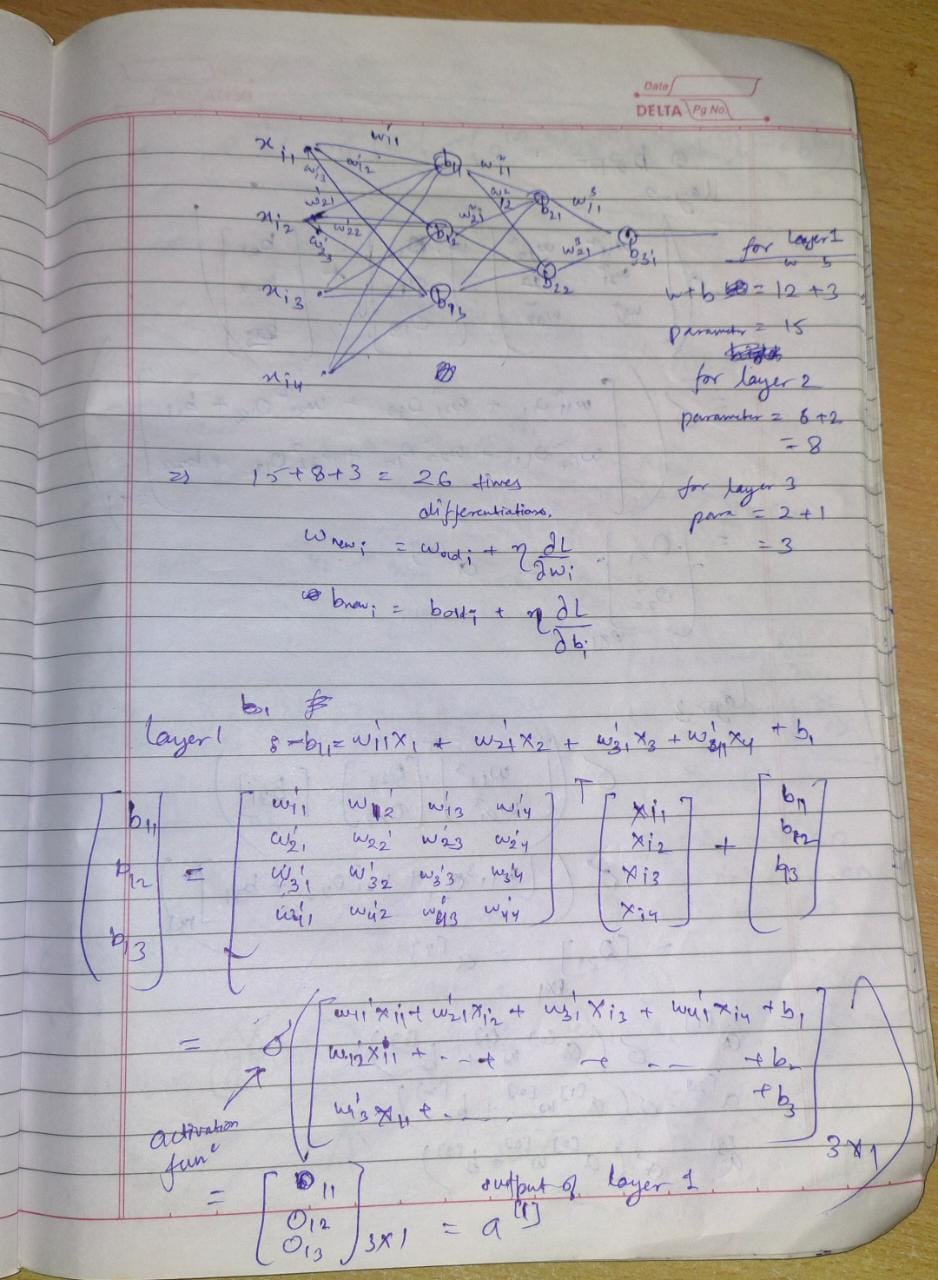 Date
DELTA Pg No.
x_i1 w¹11 b11 w²11
w¹12 w¹13 w²12 b21 w³11
w¹21
x_i2 w¹22 b12 w²21 b31
w¹23 w³21 b22
x_i3 b13
x_i4
for layer 1
w b
w+b = 12 + 3
parameter = 15
for layer 2
parameter = 6+2
= 8
for layer 3
para = 2+1
= 3
⇒ 15+8+3 = 26 times
differentiations.
w_new i = w_old i + η ∂L/∂w_i
b_new i = b_old i + η ∂L/∂b_i
b1
layer 1 b11 = w¹11 x1 + w¹21 x2 + w¹31 x3 + w¹41 x4 + b1
[b11 b12 b13] = [w¹11 w¹12 w¹13 w¹14
w¹21 w¹22 w¹23 w¹24
w¹31 w¹32 w¹33 w¹34
w¹41 w¹42 w¹43 w¹44]^T [x_i1 x_i2 x_i3 x_i4] + [b11 b12 b3]
= σ ( [w¹11 x_i1 + w¹21 x_i2 + w¹31 x_i3 + w¹41 x_i4 + b1
w¹12 x_i1 + ... + + ... + b2
w¹13 x_i1 + ... + b3] 3×1 )
activation
func
= [O11 O12 O13] 3×1 = a^[1]
output of layer 1